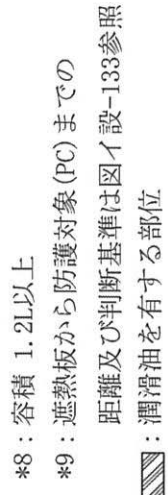 *8：容積 1.2L以上
*9：遮熱板から防護対象(PC)までの
距離及び判断基準は図イ設-133参照
：潤滑油を有する部位